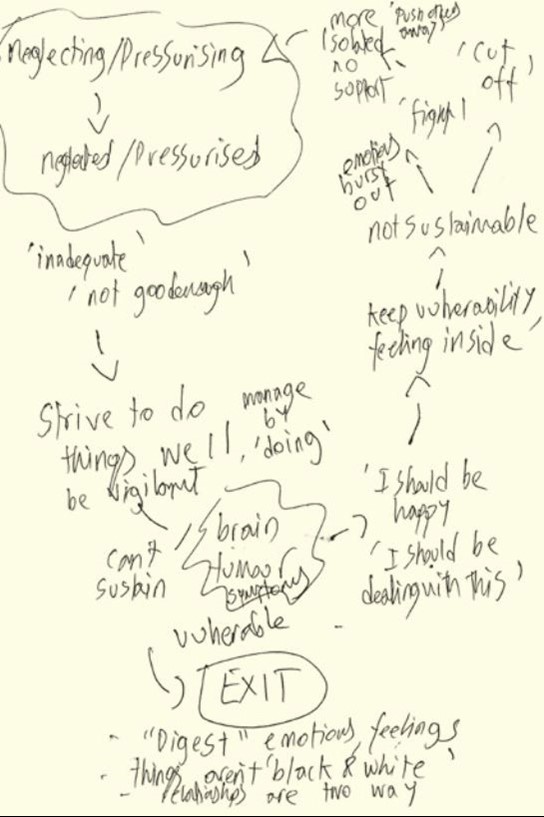 Neglecting/Pressurising
neglected/Pressurised
'inadequate'
'not good enough'
Strive to do
things well,
be vigilant
manage
by
'doing'
can't
sustain
brain
tumour
symptoms
vulnerable
'I should be
happy
'I should be
dealing with this'
keep vulnerability
feeling inside'
not sustainable
emotions
burst
out
'fight'
'cut
off'
more
isolated
no
support
'push others
away'
EXIT
- "Digest" emotions, feelings
- things aren't 'black & white'
- relationships are two way